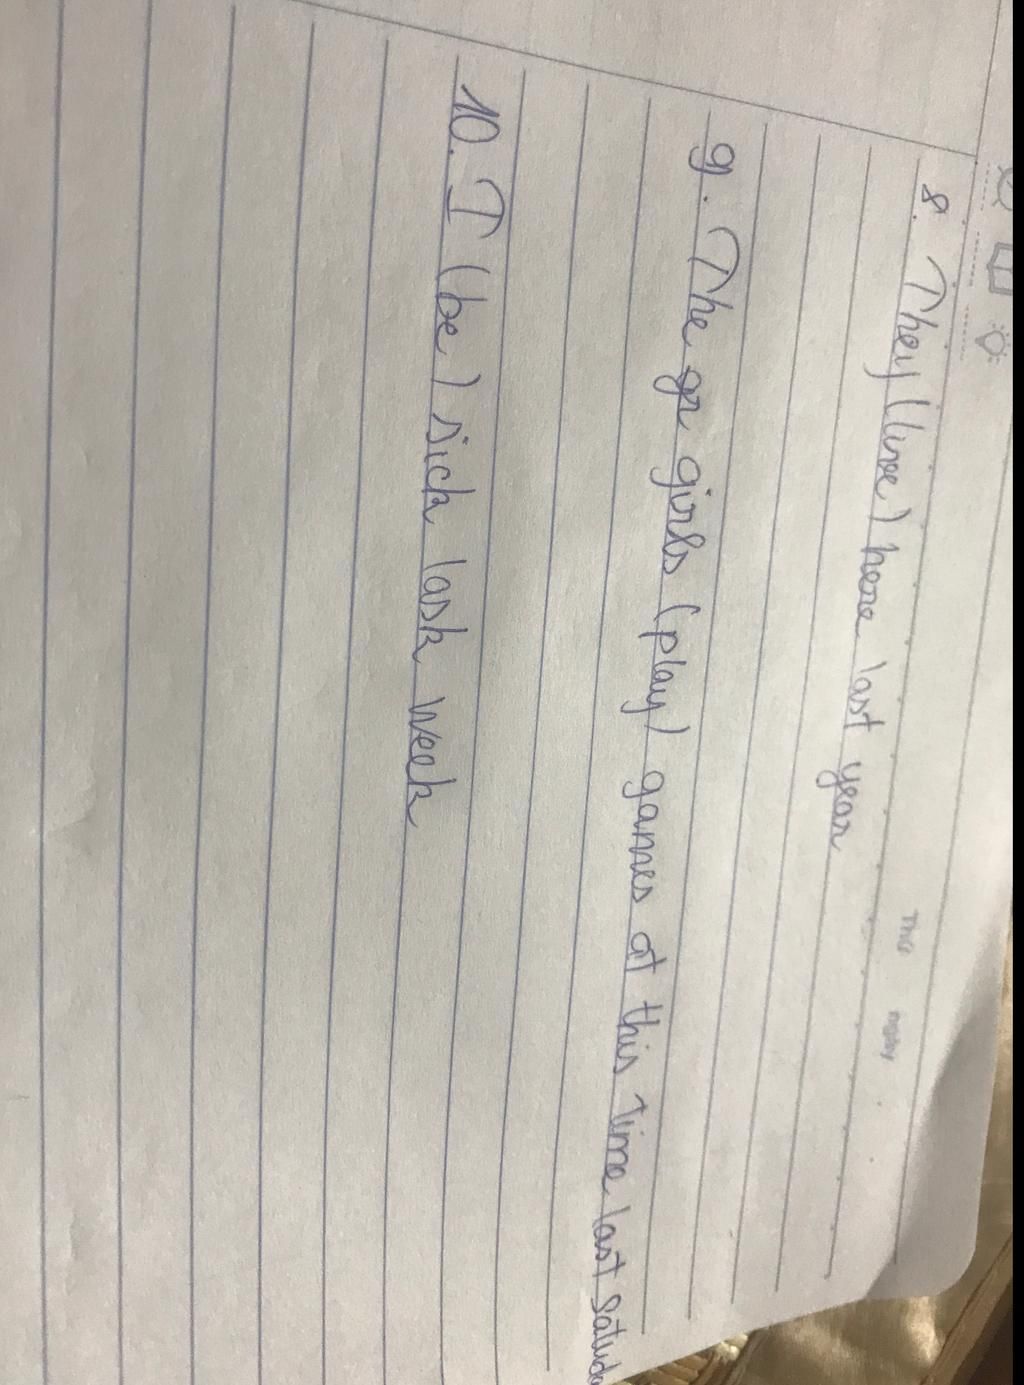 8. They (live) here last year
9. The gr girls (play) games at this time last Satuda
10. I (be) sick lask week